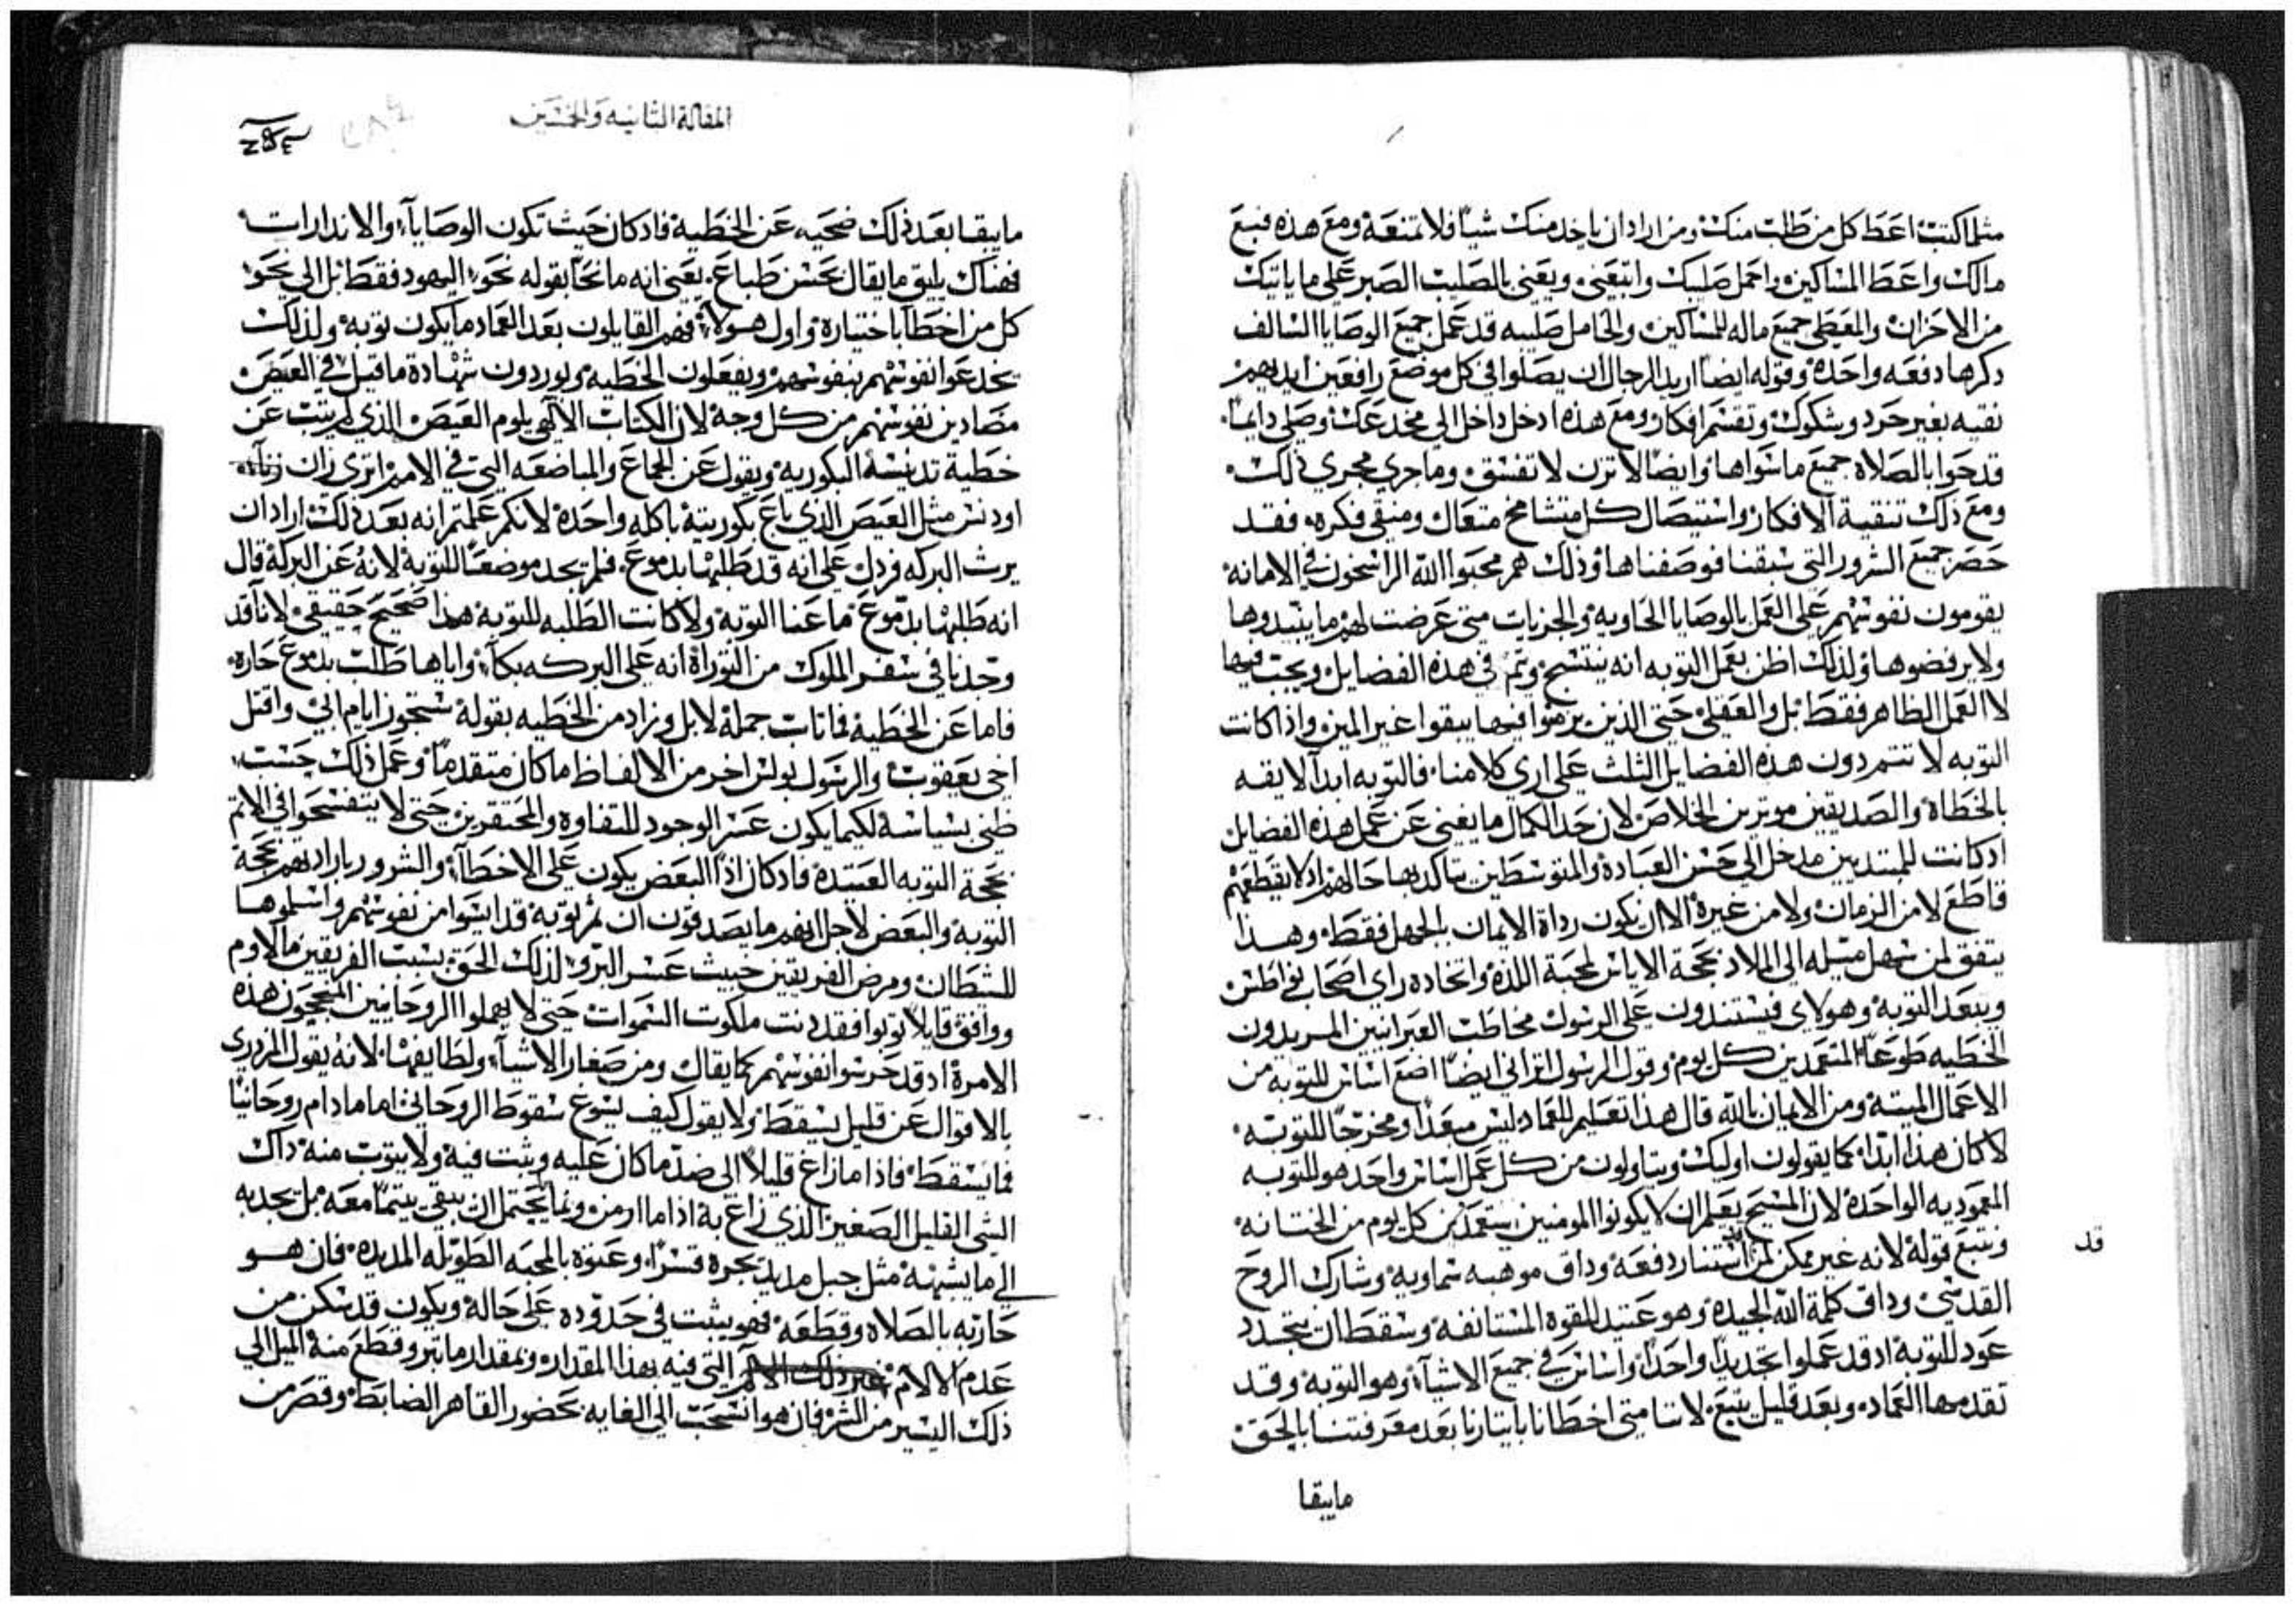 مثلما كتب اعط كل من طلب منك ومن اراد ان ياخد منك شياً فلا تمنعه ومع هذه فبع
مالك واعط المساكين واحمل صليبك واتبعنى ويعنى بالصليب الصبر على ما ياتيك
من الاحزان والمعطى جميع ماله للمساكين والحامل صليبه قد عمل جميع الوصايا السالف
دكرها دفعه واحده وقوله ايضاً اريد الرجال ان يصلوا فى كل موضع رافعين ايديهم
نقيه بغير حرد وشكوك وتقسم افكار ومع هذه ادخل داخل الى مخدعك وصلى دايماً
قد حوا بالصلاه جميع ما سواها وايضاً لا تزن لا تفسق وما جرى مجرى ذلك
ومع ذلك تنقية الافكار واستيصال كل متشامخ متعال ومنقى فكره فقد
حصر جميع الشرور التى سبقنا فوصفناها وذلك هم محبوا الله الراسخون فى الامانه
يقومون نفوسهم على العمل بالوصايا الحاويه والجزيات متى عرضت لهم ما ينبدوها
ولا يرفضوها ولذلك اظن بعمل التوبه انه ينتسج وتم فى هذه الفضايل ويجب فيها
لا العمل الظاهر فقط بل والعقلى حتى الذين يرمنوا فيها يبقوا غير المين واذا كانت
التوبه لا تتم دون هذه الفضايل الثلث على ارى كلامنا فالتوبه ابداً لايقه
بالخطاه والصديقين موترين الخلاص لان حد الكمال ما يغنى عن عمل هذه الفضايل
اد كانت للمبتديين مدخل الى حسن العباده والمتوسطين يتاكد بها حالهم اد لا يقطعهم
قاطع لا من الزمان ولا من غيره الا ان يكون رداة الايمان بالجهل فقط وهذا
يتفق لمن سهل ميله الى الملاد بحجة الاياس لمحبة اللذه واتخاده راى اصحاب نواطس
ويبعد التوبه وهولاى فيستندون على الرسول مخاطب العبرانيين المريدون
الخطيه طوعاً المتعمدين كل يوم وقول الرسول الزانى ايضاً اضع اساس للتوبه من
الاعمال الميته ومن الايمان بالله قال هذا تعليم للعماد ليس مبعداً ومخرجاً للتوبه
لا كان هذا ابداً كما يقولون اوليك ويتاولون من كل عمل اساس واحد هو للتوبه
المعموديه الواحده لان المسيح يعلم ان لا يكونوا المومنين يستعمدن كل يوم من الختانه
ونتبع قوله لانه غير ممكن لمن استنار دفعه وداق موهبه سماويه وشارك الروح
قد
القدسى وداق كلمة الله الجيده وهو عتيد للقوه المستانفه وسقط ان يتجدد
عود للتوبه اد قد عملوا تجديداً واحداً واساس فى جميع الاشياء وهو التوبه وقد
تقدمها العماد وبعد قليل يتبع لاننا متى اخطانا باىتارنا بعد معرفتنا بالحق
مايبقا
المقالة الثانيه والخمسين
مايبقا بعد ذلك ضحيه عن الخطيه فاد كان حيث تكون الوصاياء والاندارات
فهناك يليق ما يقال بحسن طباع يعنى انه ما نحا بقوله نحو اليهود فقط بل الى نحو
كل من اخطا باختياره واول هولاء فهم القايلون بعد العماد ما يكون توبه ولذلك
يخدعوا نفوسهم بنفوسهم ويفعلون الخطيه ويوردون شهادة ما قيل فى العيص
مضادين نفوسهم من كل وجه لان الكتاب الالهى يلوم العيص الذى لم يتب عن
خطية تدنيسه البكوريه ويقول عن الجماع والمباضعه التى فى الامم اترى زان
او دنس مثل العيص الذى باع بكوريته باكله واحده لانكم علمتم انه بعد ذلك اراد ان
يرث البركه فردل على انه قد طلبها بدموع فلم يجد موضعاً للتوبه لانه عن البركه قال
انه طلبها بدموع ما عنا التوبه ولا كانت الطلبه للتوبه هذا صحيح حقيقى لاناً قد
وجدنا فى سفر الملوك من التوراة انه على البركه بكاء واياها طلب بدموع حاره
فاما عن الخطيه فما تاب جملة لابل وزاد من الخطيه بقوله ستجوز ايام ابى واقتل
اخى يعقوب والرسول بولس اخر من الالفاظ ما كان متقدماً وعمل ذلك حسب
ظنى بسياسة لكيما يكون عسر الوجود للتفاوه والمحتقرين حتى لا يتفسحوا فى الاثم
بحجة التوبه العتيده فاد كان اداً البعض يكون على الاخطاء والشرور بارادتهم بحجة
التوبه والبعض لاجل انهم ما يصدقون ان ثم توبه قد ايسوا من نفوسهم واسلموها
للشطان ومرض الفريقين خبيث عسر البرو لذلك الحق بسبب الفريقين مالاوم
ووافق قايلاً توبوا فقد دنت ملكوت السموات حتى لا يهملوا الروحانيين المحتجون هذه
الامرة اد قد حرسوا نفوسهم كما يقال ومن صغار الاشياء ولطايفها لانه يقول المزدرى
بالاقوال عن قليل يسقط ولا يقول كيف يسوع سقوط الروحانى اما مادام روحانياً
فما يسقط فاذا ما زاغ قليلاً الى ضد ما كان عليه وثبت فيه ولا يتوب منه داك
الشى القليل الصغير الذى زاغ به اذا ما ازمن ونما يحتمل ان يبقى يتيماً معه بل يجدبه
الى ما يشبهه مثل حبل مديد يجره قسراً وعنوه بالمحبه الطويله المديده فان هو
حاربه بالصلاه وقطعه فهو يثبت فى حدوده على حاله ويكون قد سكن من
عدم الالام التى فيه بهذا المقدار وبمقدار ما بتر وقطع منه الميل الى
ذلك اليسير من الشر فان هو انسحب الى الغايه بحضور القاهر الضابط وقصر من